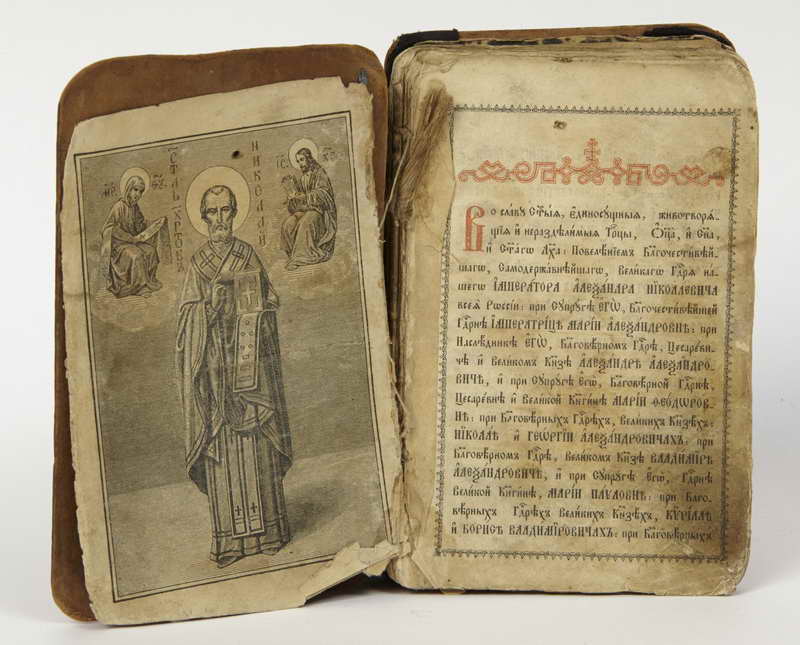 МР ѲУ
СТЛЬ ХРТОВЪ
НИКОЛАЙ
ІС ХС
Во славу Ст҃ы́ѧ, Є҆диносꙋ́щныѧ, животворѧ́-
щїѧ и҆ нераздѣ́лимыѧ Трⷪ҇цы, Ѻ҆ц҃а̀, и҆ Сн҃а,
и҆ Ст҃а́гѡ Дх҃а: Повелѣ́нїемъ Благочести́вѣй-
шагѡ, Самодержа́внѣйшагѡ, Вели́кагѡ Гдⷭ҇рѧ на́-
шегѡ І҆МПЕРА́ТОРА А҆ЛЕѮА́НДРА НІКОЛА́ЕВИЧА
всеѧ̀ Рѡссі́и: при Сꙋпрꙋ́гѣ Є҆ГѠ̀, Благочести́вѣйшей
Гдⷭ҇рнѣ І҆МПЕРАТРИ́ЦѢ МАРІ́И А҆ЛЕѮА́НДРОВНѢ: при
Наслѣ́дникѣ Є҆ГѠ̀, Благовѣ́рномъ Гдⷭ҇рѣ, Цесаре́ви-
чѣ и҆ Вели́комъ Кн҃зѣ А҆ЛЕѮА́НДРѢ А҆ЛЕѮА́НДРО-
ВИЧѢ, и҆ при Сꙋпрꙋ́гѣ Є҆гѡ̀, Благовѣ́рной Гдⷭ҇рнѣ,
Цесаре́внѣ и҆ Вели́кой Кн҃ги́нѣ МАРІ́И ѲЕОДѠРОВ-
НѢ: при Благовѣ́рныхъ Гдⷭ҇рѣхъ, Вели́кихъ Кн҃зѣхъ:
НІКОЛА́Ѣ и҆ ГЕѠ́РГІИ А҆ЛЕѮА́НДРОВИЧАХЪ: при
Благовѣ́рномъ Гдⷭ҇рѣ, Вели́комъ Кн҃зѣ ВЛАДИ́МІРѢ
А҆ЛЕѮА́НДРОВИЧѢ, и҆ при Сꙋпрꙋ́гѣ Є҆гѡ̀, Гдⷭ҇рнѣ
Вели́кой Кн҃ги́нѣ, МАРІ́И ПА́ѴЛОВНѢ: при Благо-
вѣ́рныхъ Гдⷭ҇рѣхъ Вели́кихъ Кн҃зѣхъ, КѴРІ́ЛЛѢ
и҆ БОРИ́СѢ ВЛАДИ́МІРОВИЧАХЪ: при Благовѣ́рныхъ